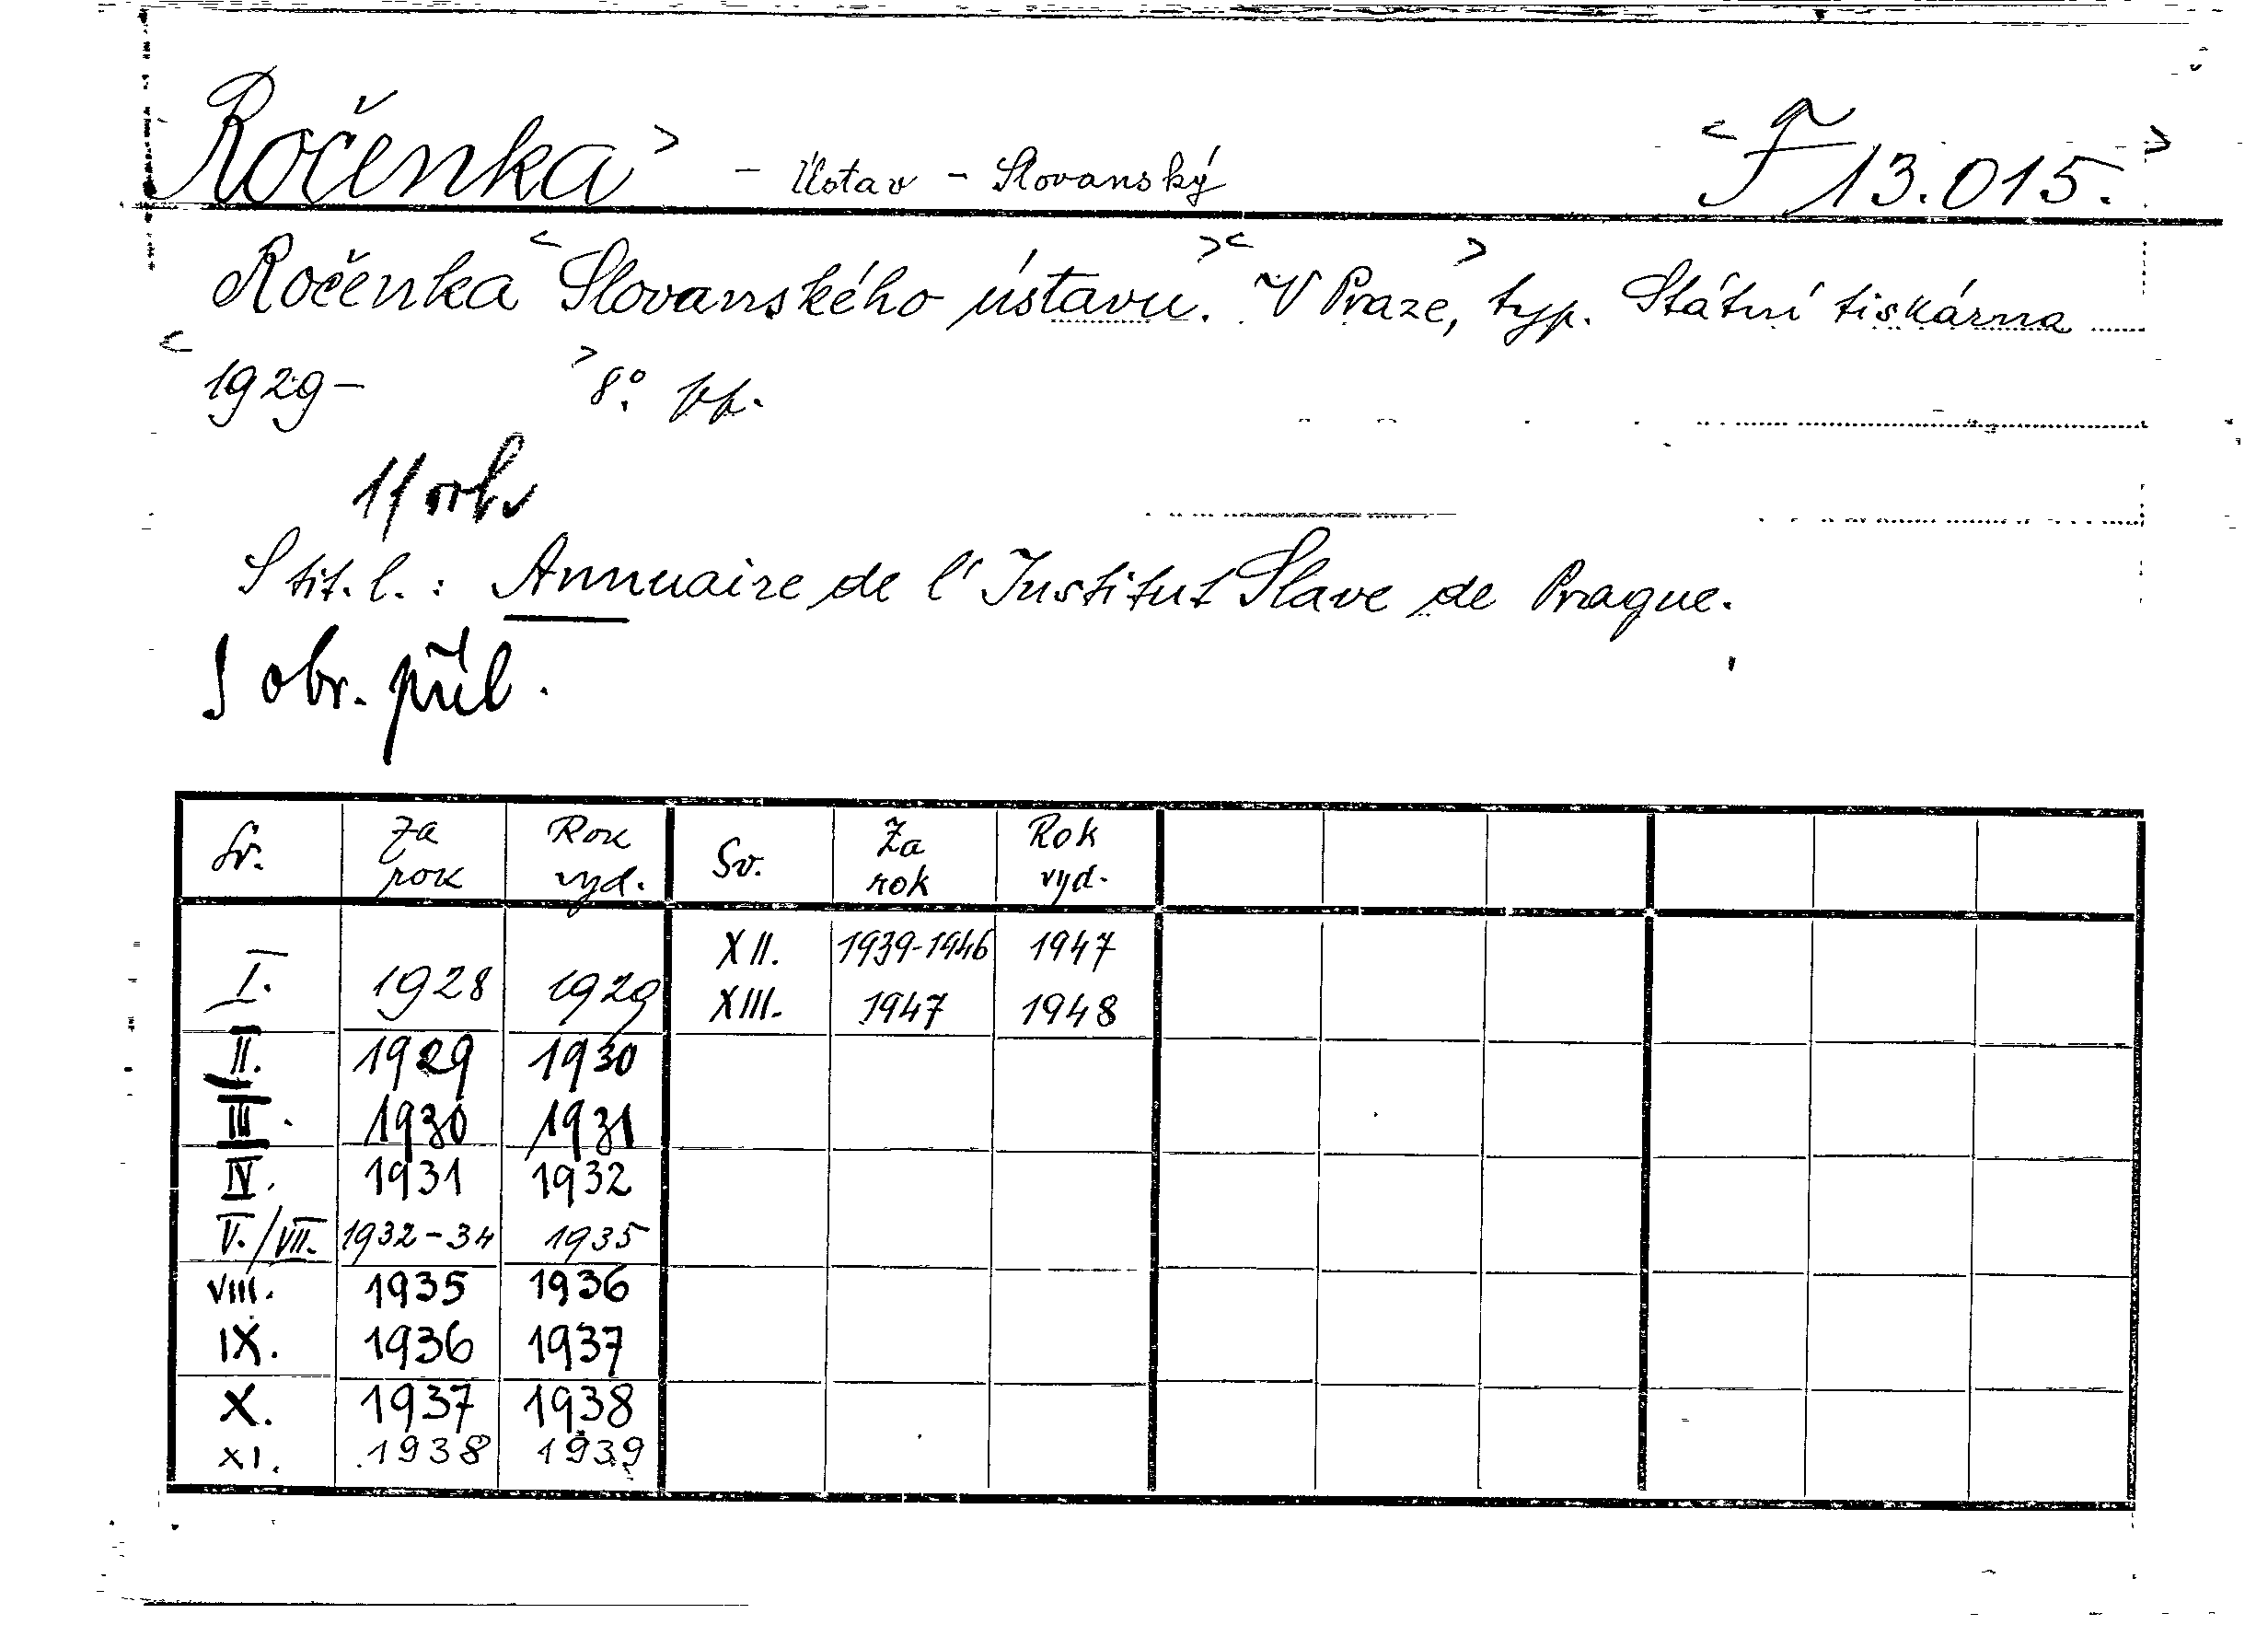 Ročenka> - Ústav - Slovanský <F 13.015.>
Ročenka <Slovanského ústavu.> <V Praze,> typ. Státní tiskárna
<1929- >8°. pp.
S tit. l.: Annuaire de l'Institut Slave de Prague.
S obr. příl.
Sv. Za rok Rok vyd. Sv. Za rok Rok vyd.
I. 1928 1929 XII. 1939-1946 1947
XIII. 1947 1948
II. 1929 1930
III. 1930 1931
IV. 1931 1932
V./VII. 1932-34 1935
VIII. 1935 1936
IX. 1936 1937
X. 1937 1938
XI. 1938 1939